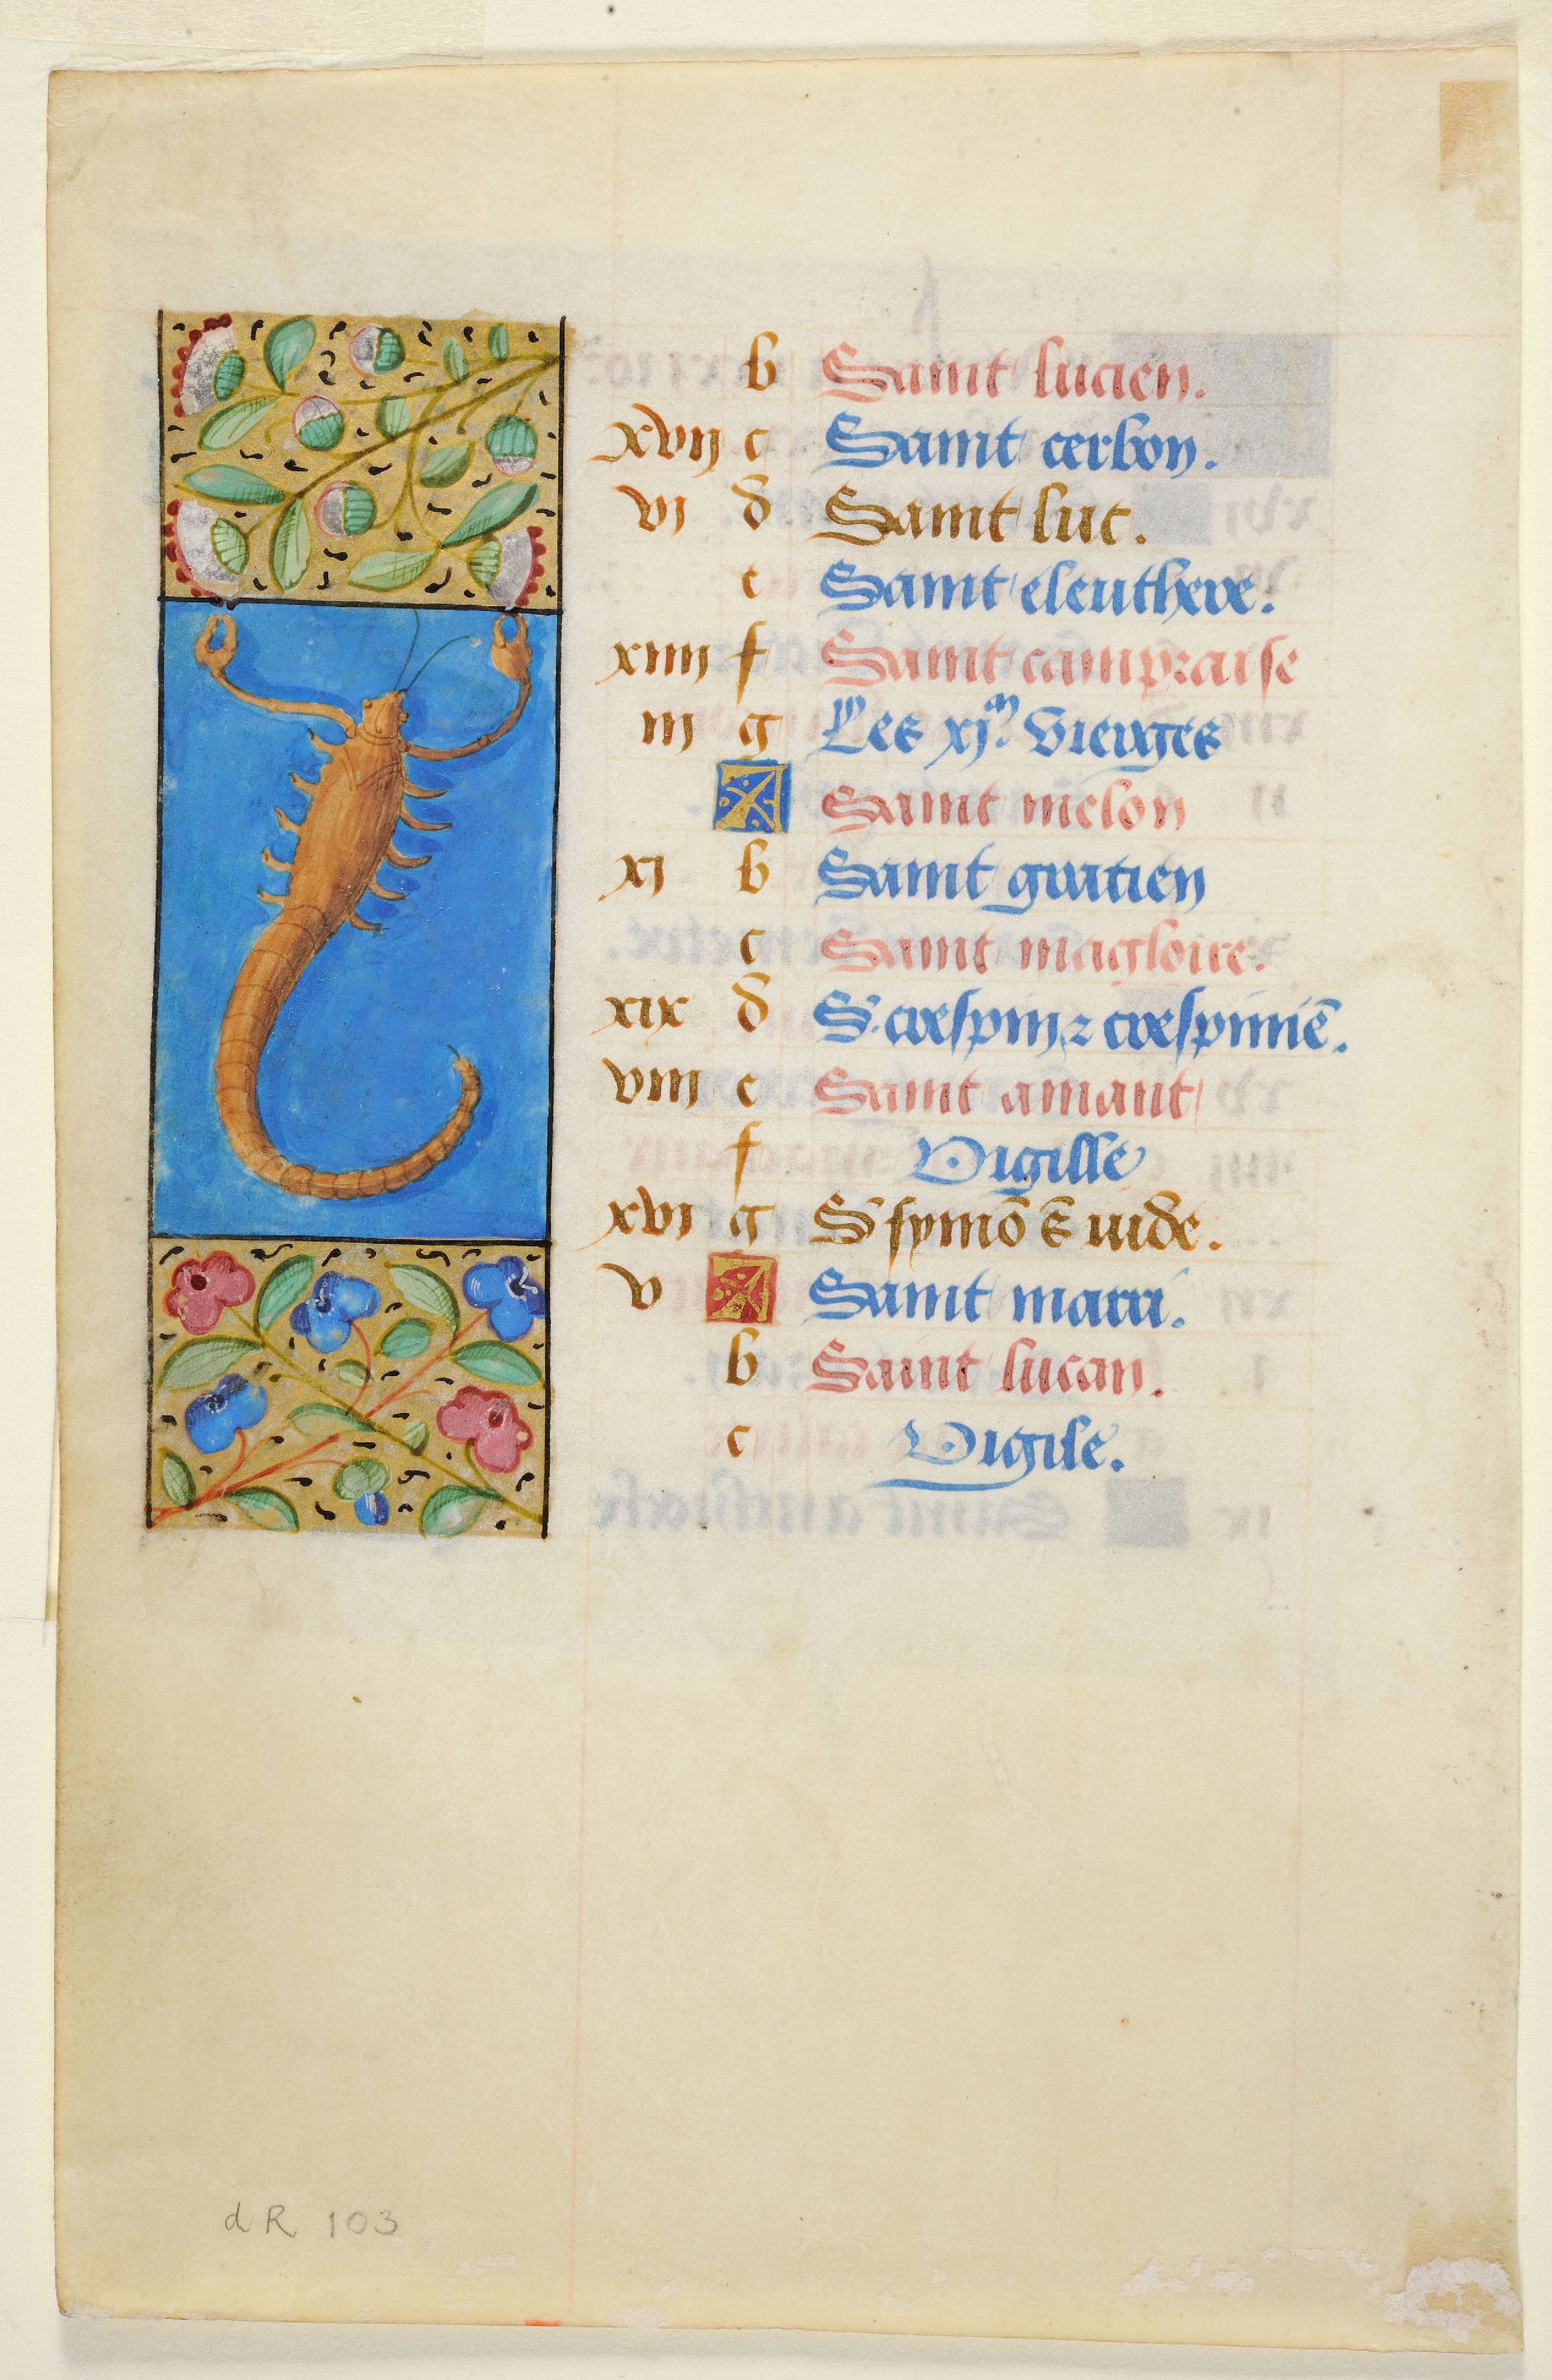 b Saint lucien.
xvij c Saint cerbon.
vi d Saint luc.
e Saint eleuthere.
xiiii f Saint campraise
iij g Les xj.m vierges
A Saint melon
xi b Saint gratien
c Saint magloire.
xix d S. crespin z crespiniē.
viii e Saint amant
f Vigille
xvi g S symō & iude.
v A Saint marri.
b Saint lucan.
c Vigile.
dR 103